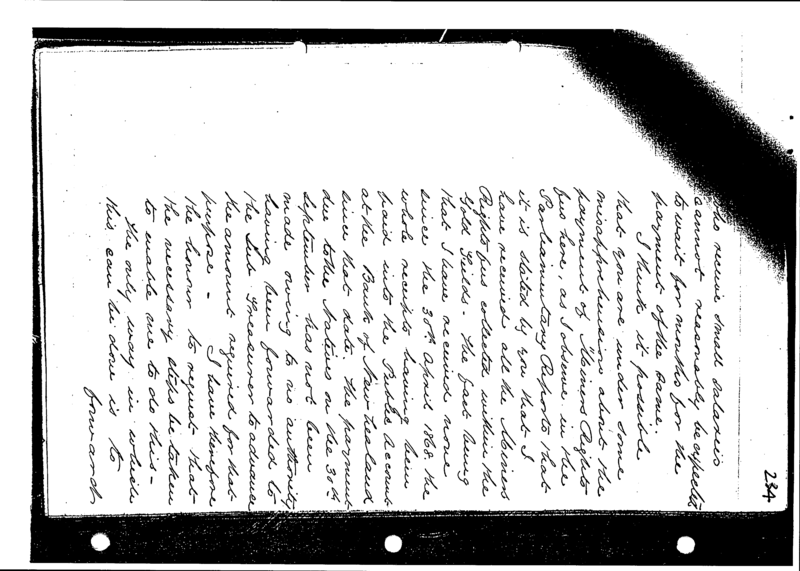 234
who receive small salaries
cannot reasonably be expected
to wait for months for the
payment of the same.
I think it possible
that you are under some
misapprehension about the
payment of Miners Rights
fees here, as I observe in the
Parliamentary Reports that
it is stated by you that I
have received all the Miners
Rights fees collected within the
Gold Fields - the fact being
that I have received none
since the 30th April 1868. the
whole receipts having been
paid into the Public Account
at the Bank of New Zealand
since that date. The payment
due to the Natives on the 30th
September has not been
made owing to no authority
having been forwarded to
the Sub Treasurer to advance
the amount required for that
purpose - I have therefore
the honor to request that
the necessary steps be taken
to enable me to do this -
The only way in which
this can be done is to
forward